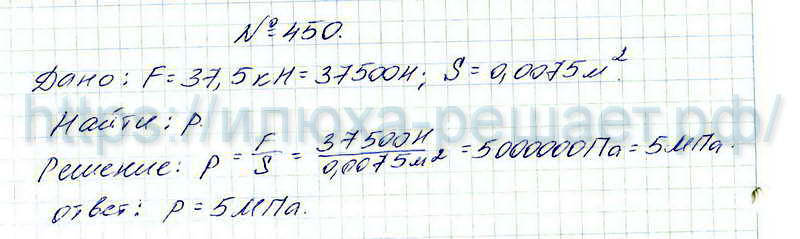 № 450.
Дано: F = 37,5 кН = 37500Н; S = 0,0075 м².
https://илюха-решает.рф/
Найти: p.
Решение: p = F/S = 37500Н/0,0075м² = 5000000Па = 5МПа.
ответ: p = 5МПа.